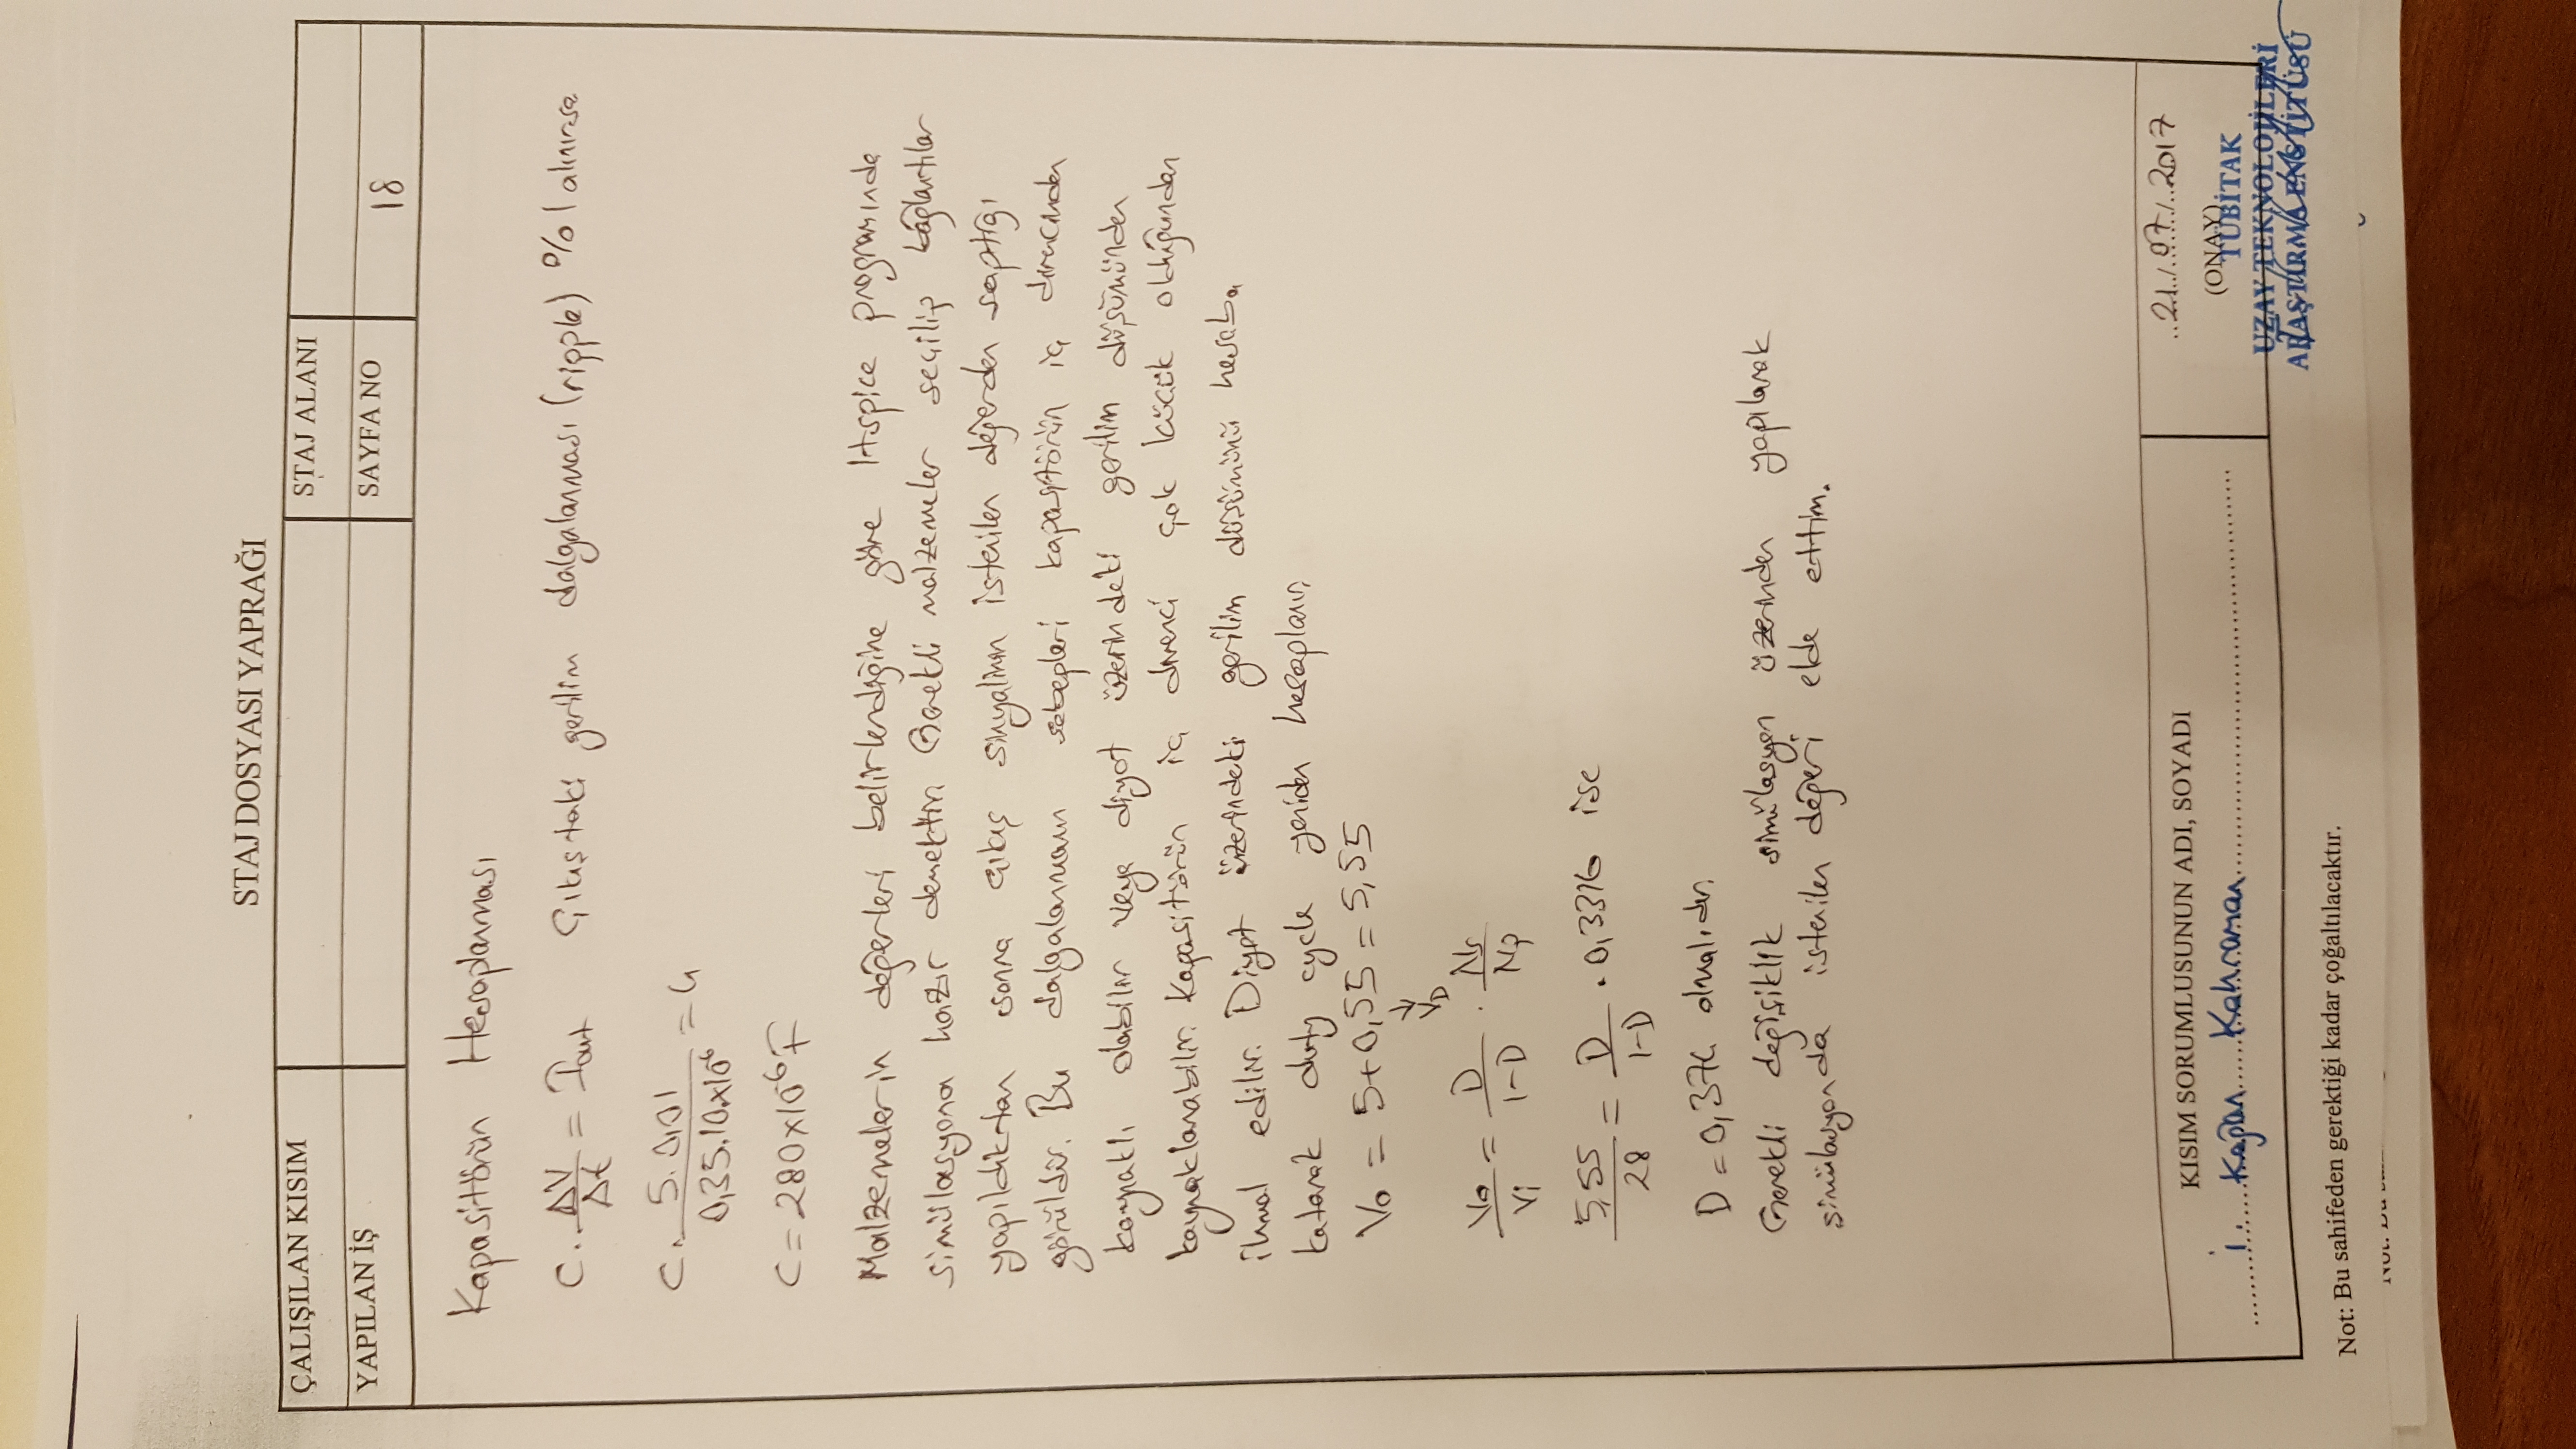 STAJ DOSYASI YAPRAĞI
ÇALIŞILAN KISIM
STAJ ALANI
YAPILAN İŞ
SAYFA NO
18
Kapasitörün Hesaplanması
C . ΔV/Δt = Iout Çıkıştaki gerilim dalgalanması (ripple) %1 alınırsa
C . 5.0,01 / 0,35.10x10⁻⁶ = 4
C = 280x10⁻⁶ F
Malzemelerin değerleri belirlendiğine göre ltspice programında
simülasyona hazır demektir. Gerekli malzemeler seçilip bağlantılar
yapıldıktan sonra çıkış sinyalinin istenilen değerden saptığı
görüldü. Bu dalgalanmanın sebepleri kapasitörün iç direncinden
kaynaklı olabilir veya diyot üzerindeki gerilim düşümünden
kaynaklanabilir. Kapasitörün iç direnci çok küçük olduğundan
ihmal edilir. Diyot üzerindeki gerilim düşümünü hesaba
katarak duty cycle yeniden hesaplanır.
Vo = 5+0,55 = 5,55
↓
VD
Vo/Vi = D/1-D . Ns/Np
5,55/28 = D/1-D . 0,3316 ise
D = 0,374 olmalıdır.
Gerekli değişiklik simülasyon üzerinden yapılarak
simülasyonda istenilen değeri elde ettim.
KISIM SORUMLUSUNUN ADI, SOYADI
i. Kağan Kahraman
21/07/2017
(ONAY)
TÜBİTAK
UZAY TEKNOLOJİLERİ
ARAŞTIRMA ENSTİTÜSÜ
Not: Bu sahifeden gerektiği kadar çoğaltılacaktır.